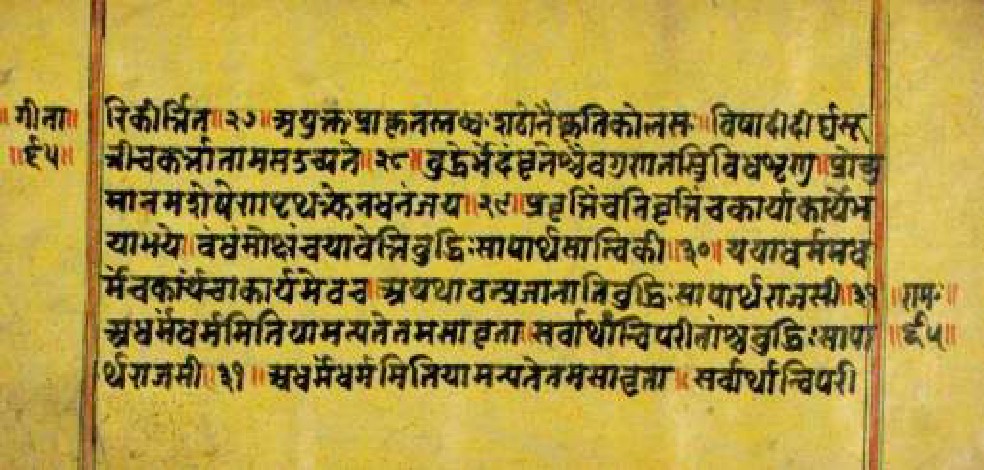 ॥गीता॥ रिकीर्त्तितः॥२७॥अयुक्तःप्राकृतस्तब्धःशठोनैष्कृतिकोलसः॥विषादीदीर्घसू
॥६५॥ त्रीचकर्त्तातामसउच्यते॥२८॥बुद्धेर्भेदंधृतेश्चैवगुणातस्त्रिविधंशृणु॥प्रोच्य
मानमशेषेणपृथक्त्केनधनंजय॥२९॥प्रवृत्तिंचनिवृत्तिंचकार्याकार्येभ
याभये॥बंधंमोक्षंचयावेत्तिबुद्धिःसापार्थसात्त्विकी॥३०॥ययाधर्ममध
र्मंचकार्यंचाकार्यमेवच॥अयथावत्प्रजानातिबुद्धिःसापार्थराजसी॥३१ ॥रामः॥
अधर्मंधर्ममितियामन्यतेतमसावृता॥सर्वार्थान्विपरीतांश्चबुद्धिःसापा ॥६५॥
र्थराजसी॥३१॥अधर्मंधर्ममितियामन्यतेतमसावृता॥सर्वार्थान्विपरी